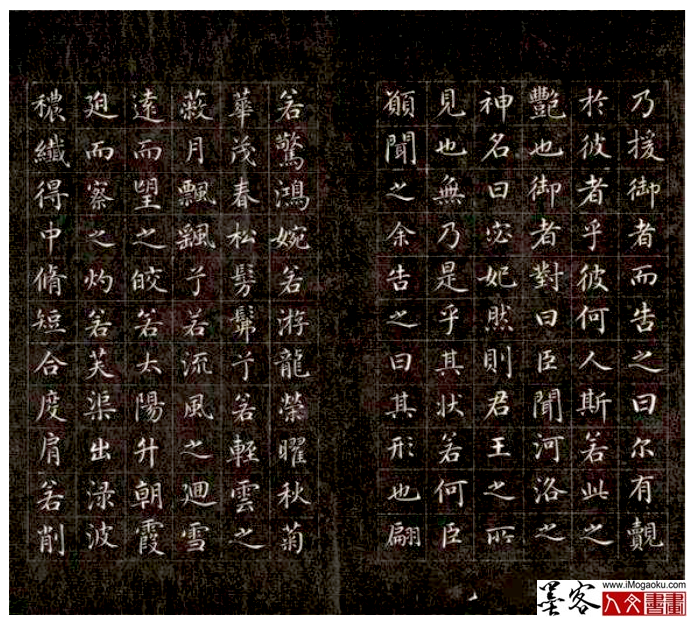 乃援御者而告之曰尔有覿
於彼者乎彼何人斯若此之
豔也御者對曰臣聞河洛之
神名曰宓妃然則君王之所
見也無乃是乎其狀若何臣
願聞之余告之曰其形也翩
若驚鴻婉若游龍榮曜秋菊
華茂春松髣髴兮若輕雲之
蔽月飄颻兮若流風之迴雪
遠而望之皎若太陽升朝霞
迫而察之灼若芙渠出淥波
穠纖得中脩短合度肩若削
墨客
www.iMogaoku.com
人文書畫